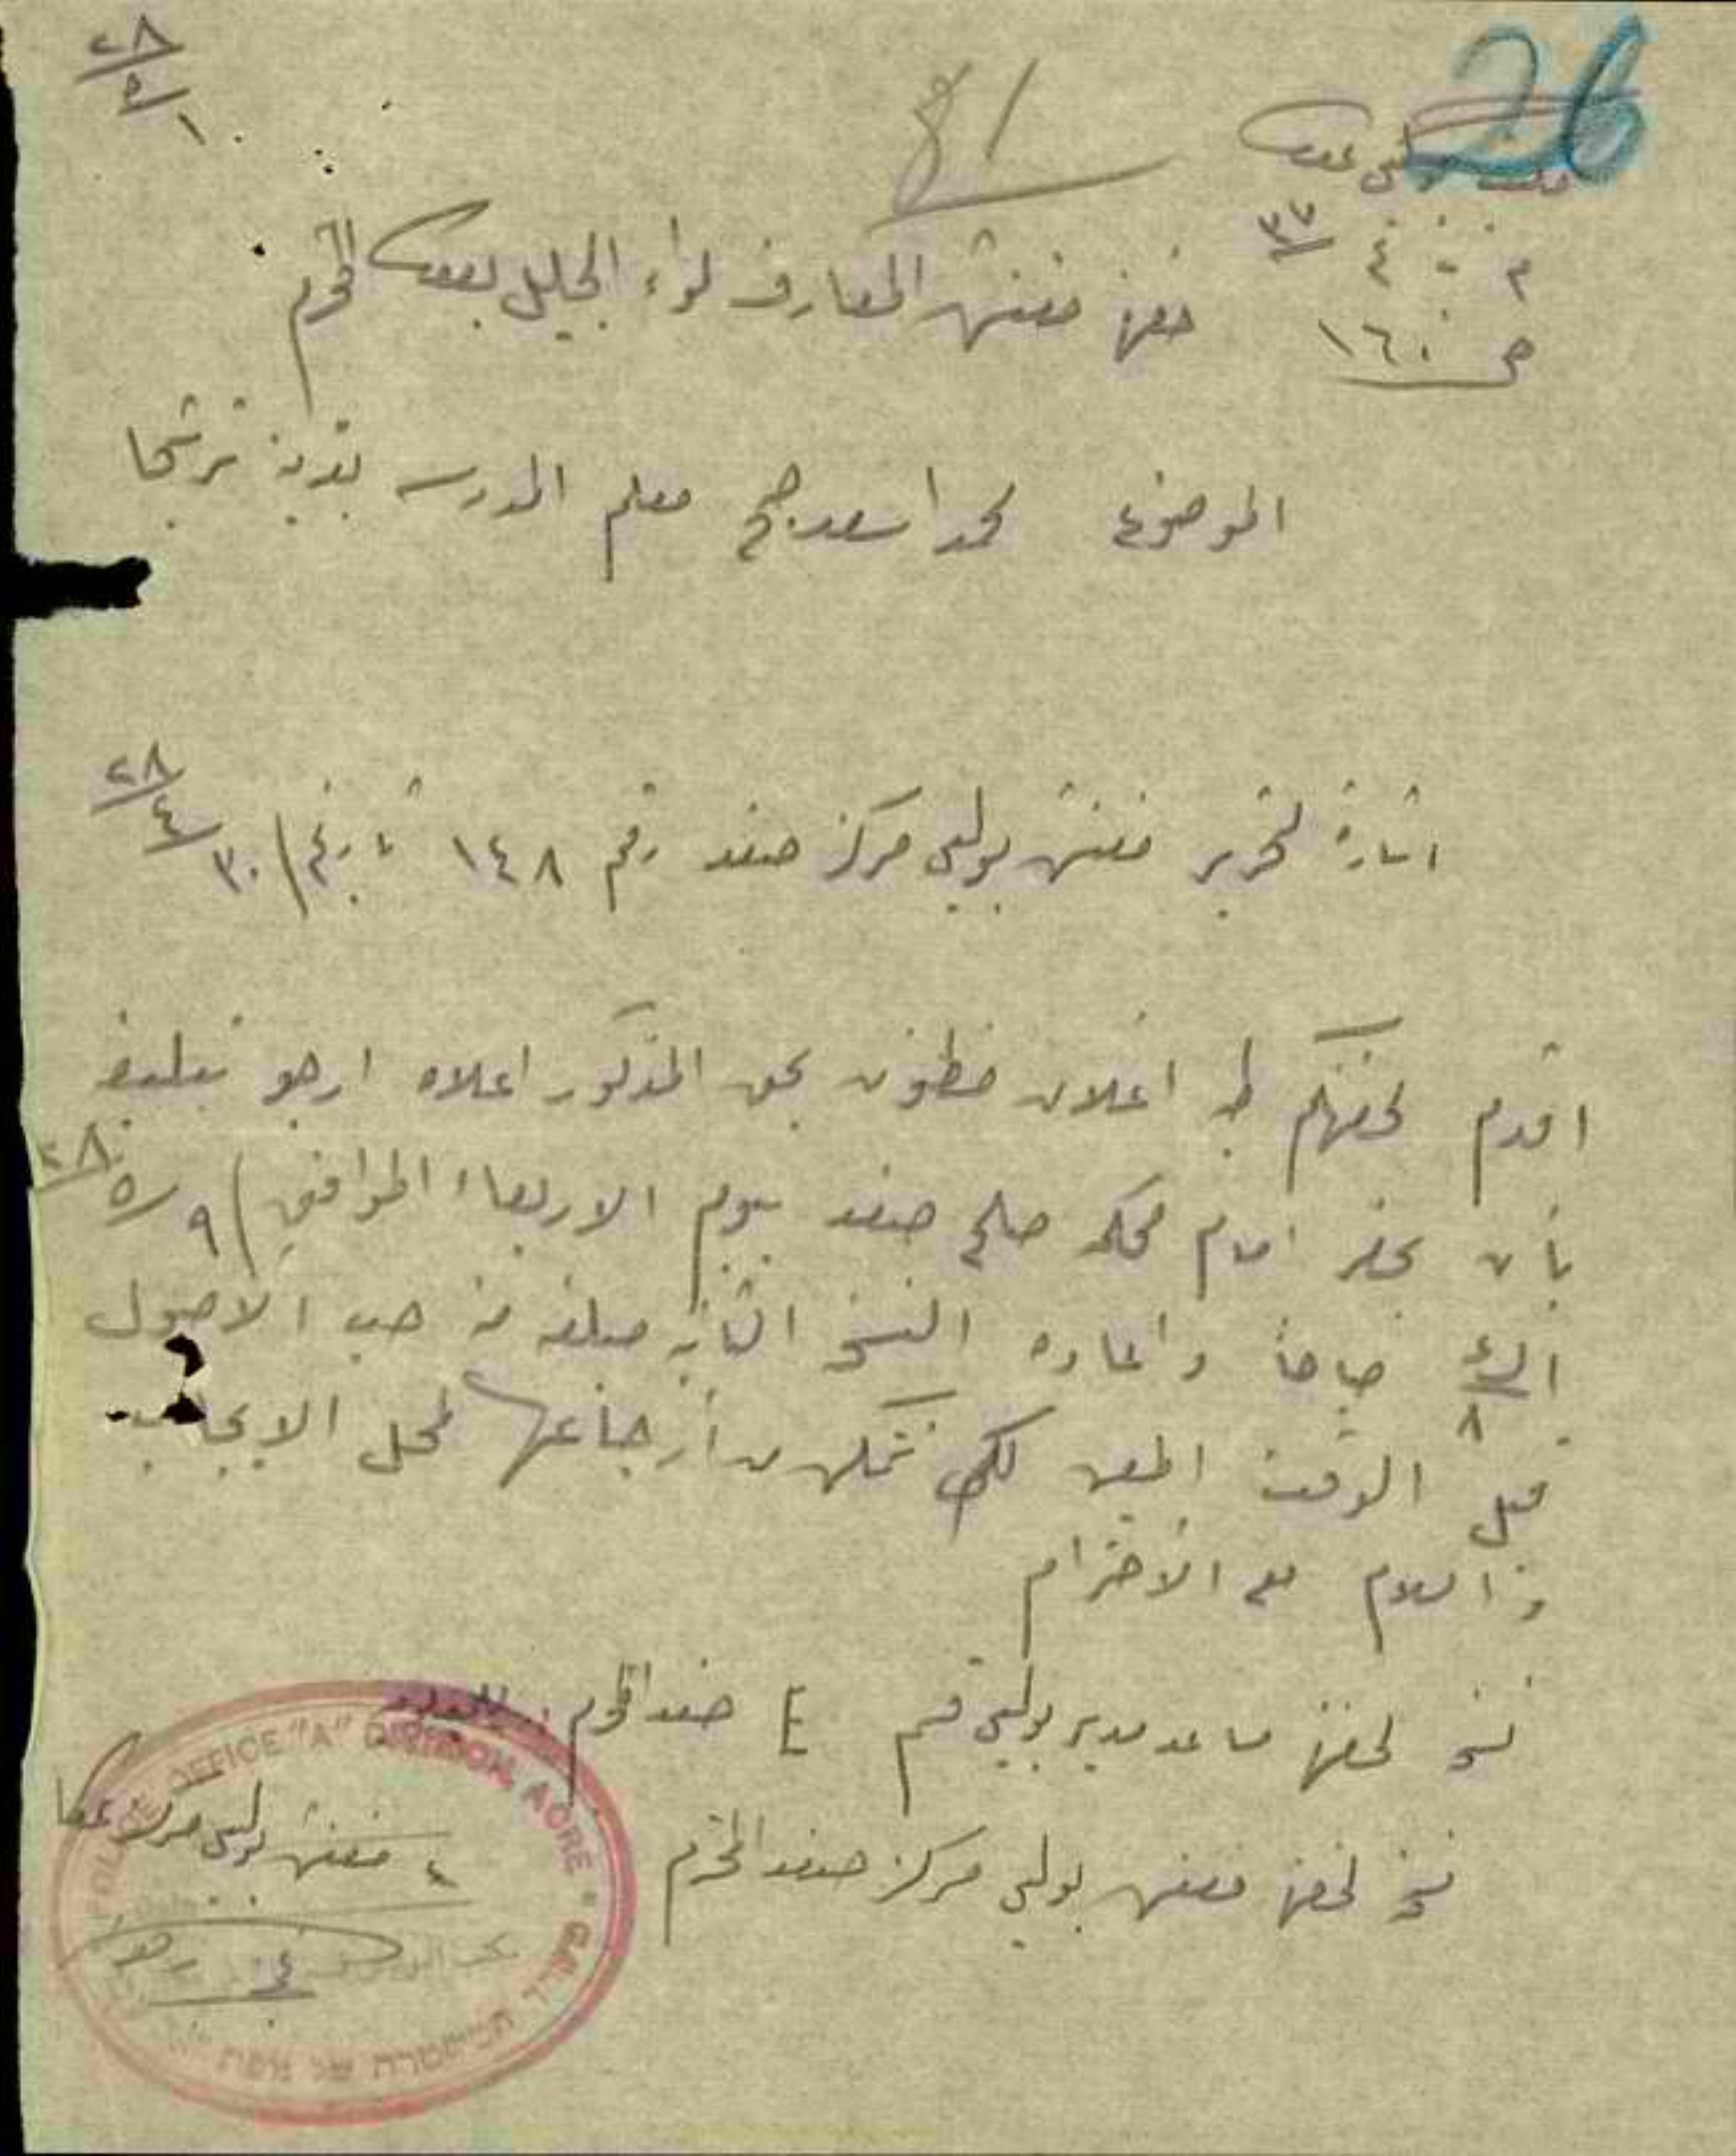 ٢٨/٥/١
26
81
بوليس عكا
م - ٤ / ٣٧
ص ١٦٠
حضرة مفتش المعارف لواء الجليل بعكا المحترم
الموضوع محمد اسعد معلم المدرسه بقرية ترشيحا
اشارة لتحرير مفتش بوليس مركز صفد رقم ١٤٨ تاريخ ٣٠/٤/٢٨
اقدم لحضرتكم طيه اعلان مظنون بحق المذكور اعلاه ارجو تبليغه
بأن يحضر امام محكمة صلح صفد بيوم الاربعاء الموافق ٩/٥/٢٨
الساعه ٨ صباحاً واعادة النسخه الثانيه مبلغه منه حسب الاصول
قبل الوقت المعين لكي نتمكن من أرجاعها لمحل الايجاب
والسلام مع الاحترام
نسخه لحضرة مساعد مدير بوليس قسم E صفد المحترم
نسخه لحضرة مفتش بوليس مركز صفد المحترم
ع مفتش بوليس مركز عكا
POLICE OFFICE "A" DIVISION, ACRE